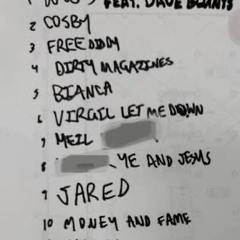 FEAT. DAVE BLUNTS
2 COSBY
3 FREE DIDDY
4 DIRTY MAGAZINES
5 BIANCA
6 VIRGIL LET ME DOWN
7 HEIL
8 YE AND JESUS
9 JARED
10 MONEY AND FAME